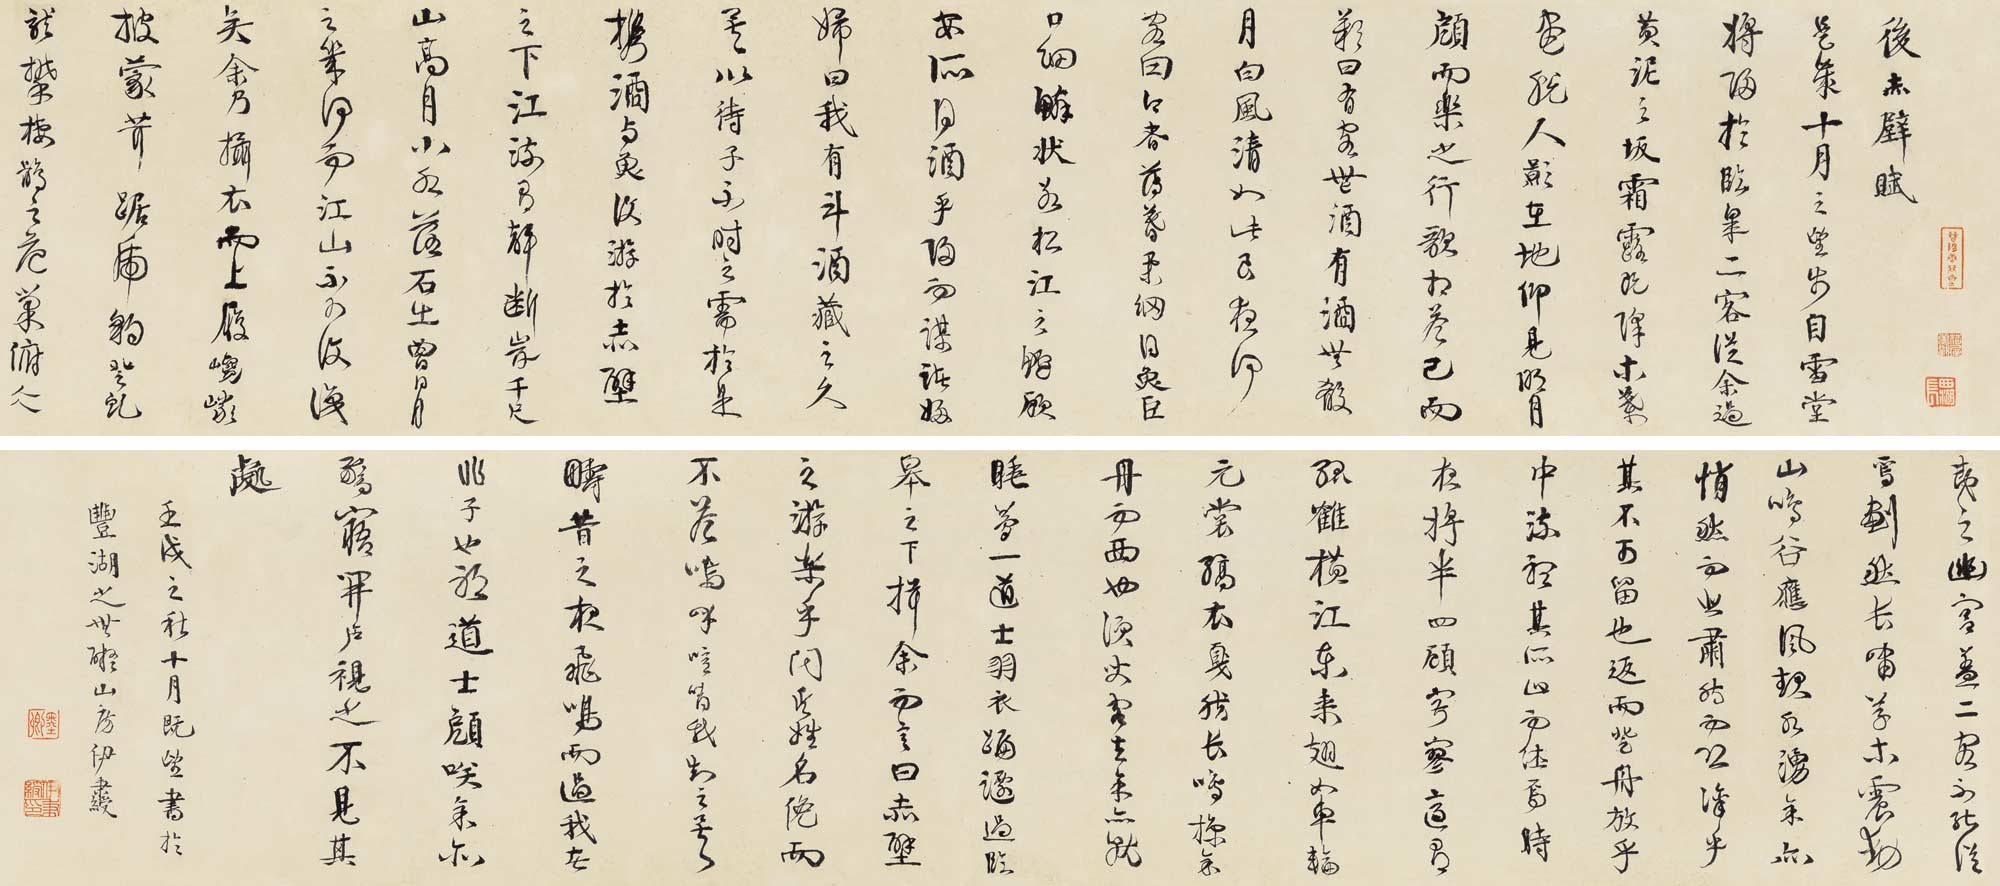 後赤壁賦
是歲十月之望步自雪堂
將歸於臨皋二客從余過
黃泥之坂霜露既降木葉
盡脫人影在地仰見明月
顧而樂之行歌相答已而
歎曰有客無酒有酒無殽
月白風清如此良夜何
客曰今者薄暮舉網得魚巨
口細鱗狀若松江之鱸顧
安所得酒乎歸而謀諸婦
婦曰我有斗酒藏之久
矣以待子不時之需於是
携酒與魚復游於赤壁
之下江流有聲斷岸千尺
山高月小水落石出曾日月
之幾何而江山不可復識
矣余乃攝衣而上履巉巖
披蒙茸踞虎豹登虬
龍攀棲鶻之危巢俯馮
夷之幽宮蓋二客不能從
焉劃然長嘯草木震動
山鳴谷應風起水湧余亦
悄然而悲肅然而恐凜乎
其不可留也返而登舟放乎
中流聽其所止而休焉時
夜將半四顧寂寥適有
孤鶴橫江東來翅如車輪
元裳縞衣戛然長鳴掠余
舟而西也須臾客去余亦就
睡夢一道士羽衣蹁躚過臨
皋之下揖余而言曰赤壁
之游樂乎問其姓名俛而
不答嗚呼噫嘻我知之矣
疇昔之夜飛鳴而過我者
非子也耶道士顧笑余亦
驚寤開戶視之不見其
處
壬戌之秋十月既望書於
豐湖之無礙山房伊秉綬